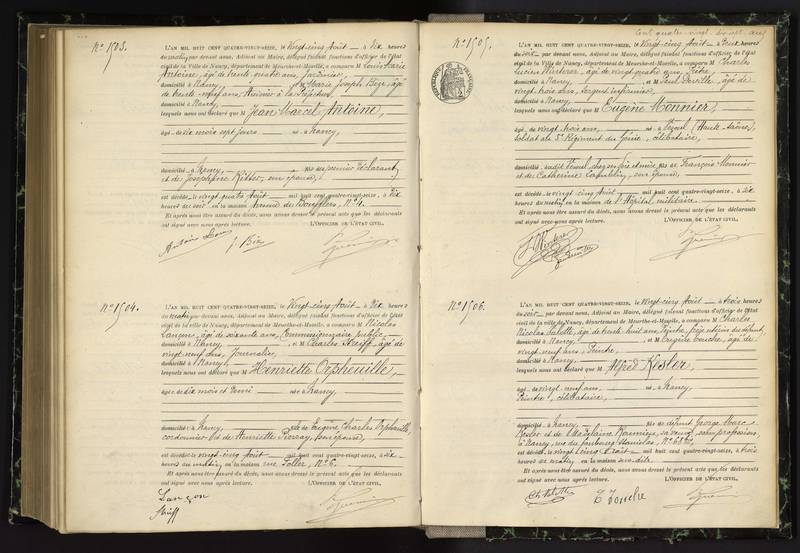 N° 1503.
L'AN MIL HUIT CENT QUATRE-VINGT-SEIZE, le Vingt-cinq Août — à Dix heures
du matin, par devant nous, Adjoint au Maire, délégué faisant fonctions d'officier de l'état
civil de la ville de Nancy, département de Meurthe-et-Moselle, a comparu M Louis Marie
Antoine, âgé de trente quatre ans, Jardinier,
domicilié à Nancy, et M Marie Joseph Bize, âgé
de trente-neuf ans, huissier à la Préfecture,
domicilié à Nancy,
lesquels nous ont déclaré que M Jean Marcel Antoine,
âgé de dix mois sept jours né à Nancy,
domicilié à Nancy, fils du premier déclarant
et de Joséphine son épouse,
est décédé, le vingt-quatre Août mil huit cent quatre-vingt-seize, à Dix
heures du soir en la maison Avenue de Boufflers, N° 4.
Et après nous être assuré du décès, nous avons dressé le présent acte que les déclarants
ont signé avec nous après lecture. L'OFFICIER DE L'ÉTAT CIVIL,
Antoine Louis
J Bize
N° 1504.
L'AN MIL HUIT CENT QUATRE-VINGT-SEIZE, le Vingt-cinq Août — à Dix heures
du matin, par devant nous, Adjoint au Maire, délégué faisant fonctions d'officier de l'état
civil de la ville de Nancy, département de Meurthe-et-Moselle, a comparu M Nicolas
âgé de soixante ans, Commissionnaire public,
domicilié à Nancy et M Charles Streiff, âgé de
vingt-neuf ans, Journalier,
domicilié à Nancy,
lesquels nous ont déclaré que M Henriette Orpheuille,
âgée de dix mois et demi née à Nancy,
domiciliée à Nancy, fille de Eugène Charles Orpheuille
cordonnier et de Henriette son épouse,
est décédée, le vingt-cinq Août mil huit cent quatre-vingt-seize, à six
heures du matin, en la maison rue N° 6.
Et après nous être assuré du décès, nous avons dressé le présent acte que les déclarants
ont signé avec nous après lecture. L'OFFICIER DE L'ÉTAT CIVIL,
Cent quatre-vingt-dix-sept
N° 1505.
L'AN MIL HUIT CENT QUATRE-VINGT-SEIZE, le Vingt-cinq Août — à Deux heures
du soir par devant nous, Adjoint au Maire, délégué faisant fonctions d'officier de l'état
civil de la ville de Nancy, département de Meurthe-et-Moselle, a comparu M Charles
Lucien âgé de vingt-quatre ans,
domicilié à Nancy, et M Paul âgé de
vingt-trois ans, Sergent infirmier,
domicilié à Nancy,
lesquels nous ont déclaré que M Eugène Monnier,
âgé de vingt trois ans, né à Vesoul (Haute-Saône),
soldat au 5e Régiment du Génie, célibataire,
domicilié fils de François Monnier
et de Catherine son épouse,
est décédé, le vingt-cinq Août mil huit cent quatre-vingt-seize, à dix
heures du matin, en la maison de l'Hôpital militaire.
Et après nous être assuré du décès, nous avons dressé le présent acte que les déclarants
ont signé avec nous après lecture. L'OFFICIER DE L'ÉTAT CIVIL,
N° 1506.
L'AN MIL HUIT CENT QUATRE-VINGT-SEIZE, le Vingt-cinq Août — à trois heures
du soir par devant nous, Adjoint au Maire, délégué faisant fonctions d'officier de l'état
civil de la ville de Nancy, département de Meurthe-et-Moselle, a comparu M Charles
Nicolas âgé de trente-huit ans, Peintre,
domicilié à Nancy, et M âgé de
vingt-neuf ans, Peintre,
domicilié à Nancy,
lesquels nous ont déclaré que M Alfred Kesler,
âgé de vingt-neuf ans, né à Nancy,
Peintre, célibataire,
domicilié à Nancy, fils de défunt George Marc
Kesler et de Madelaine sa veuve, sans profession,
à Nancy, rue du faubourg Stanislas,
est décédé, le vingt-cinq Août mil huit cent quatre-vingt-seize, à trois
heures du matin, en la maison
Et après nous être assuré du décès, nous avons dressé le présent acte que les déclarants
ont signé avec nous après lecture. L'OFFICIER DE L'ÉTAT CIVIL,